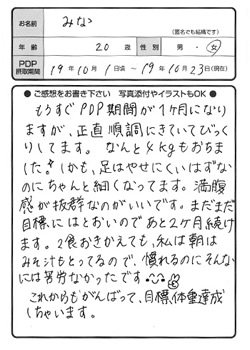 お名前 みな
(匿名でも結構です)
年齢 20歳 性別 男・女
PDP摂取期間 19年10月1日頃〜19年10月23日(現在)
●ご感想をお書き下さい 写真添付やイラストもOK●
もうすぐPDP期間が1ヶ月になり
ますが、正直順調にきていてびっく
りしてます。なんと4kgもおちま
した。しかも、足はやせにくいはずな
のにちゃんと細くなってます。満腹
感が抜群なのがいいです。まだまだ
目標にはとおいのであと2ヶ月続け
ます。2食おきかえても、私は朝は
みそ汁もとってるので、慣れるのにそんな
には苦労なかったです
これからもがんばって、目標体重達成
しちゃいます。